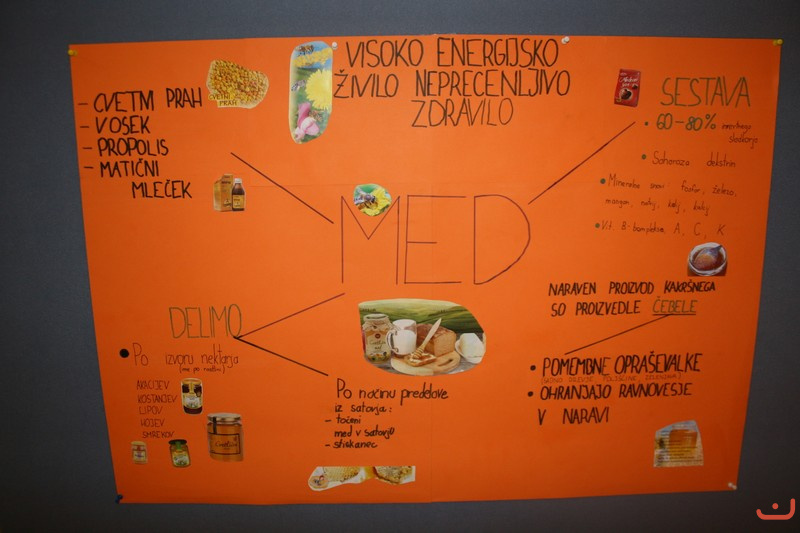 VISOKO ENERGIJSKO
ŽIVILO NEPRECENLJIVO
ZDRAVILO
- CVETNI PRAH
- VOSEK
- PROPOLIS
- MATIČNI
MLEČEK
CVETNI
PRAH
MED
SESTAVA
• 60-80% invertnega
sladkorja
• Saharoza dekstrin
• Mineralne snovi fosfor, železo,
mangan, natrij, kalij,
• Vit. B-kompleksa, A, C, K
NARAVEN PROIZVOD KAKRŠNEGA
SO PROIZVEDLE ČEBELE
• POMEMBNE OPRAŠEVALKE
• OHRANJAJO RAVNOVESJE
V NARAVI
DELIMO
• Po izvoru nektarja
AKACIJEV
KOSTANJEV
LIPOV
HOJEV
SMREKOV
Po načinu predelave
iz satovja:
- točeni
med v satovju
- stiskanec